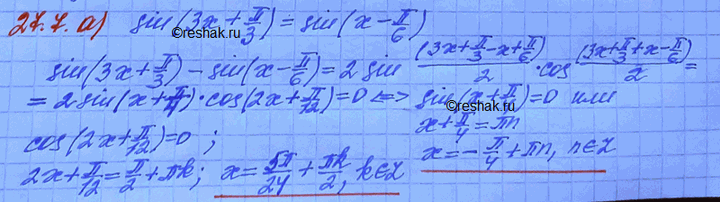 27.7. а) sin(3x+π/3) = sin(x-π/6)
©reshak.ru
sin(3x+π/3) - sin(x-π/6) = 2 sin (3x+π/3-x+π/6)/2 · cos (3x+π/3+x-π/6)/2 =
= 2 sin(x+π/4) · cos(2x+π/12) = 0 <=> sin(x+π/4) = 0 или
©reshak.ru
cos(2x+π/12) = 0 ; x+π/4 = πn
2x+π/12 = π/2 + πk; x = 5π/24 + πk/2, k∈Z x = -π/4 + πn, n∈Z